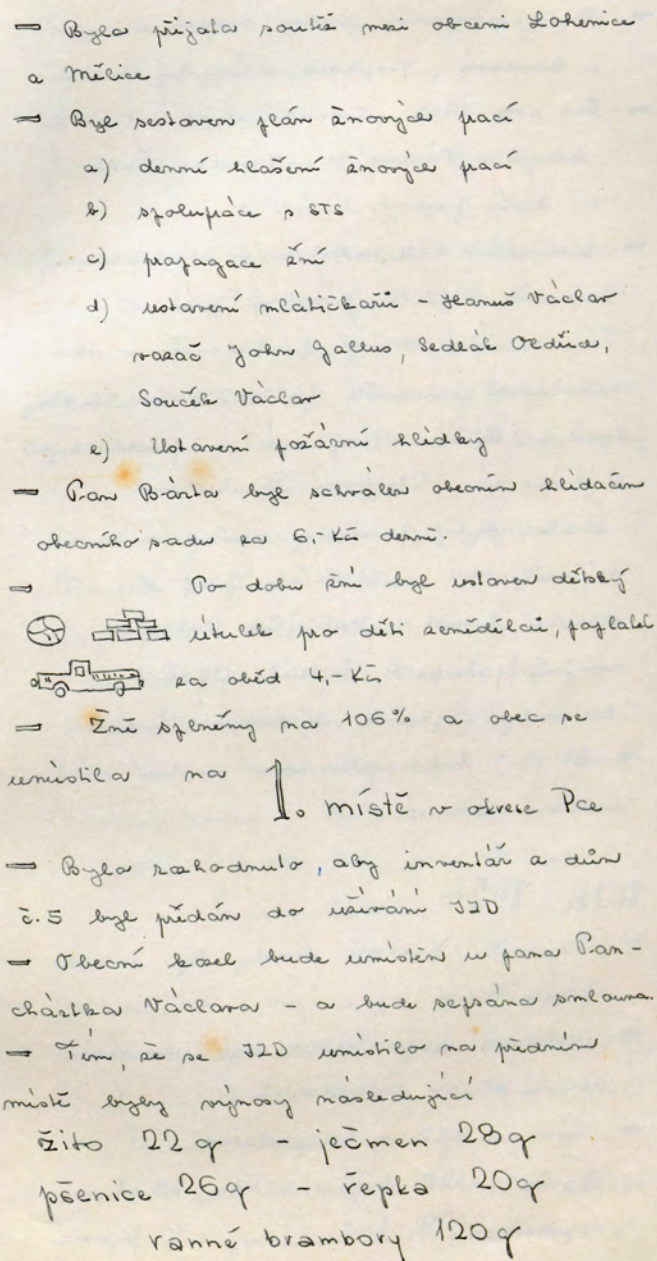 = Byla přijata soutěž mezi obcemi Lohenice
a Mělice
= Byl sestaven plán žnových prací
a) denní hlašení žnových prací
b) spolupráce s STS
c) propagace žní
d) ustavení mlátičkařů - Hanuš Václav
vazač John Gallus, Sedlák Oldřich,
Souček Václav
e) Ustavení požární hlídky
= Pan Bárta byl schválen obecním hlídačem
obecního sadu za 6,- Kčs denně.
= Po dobu žní byl ustaven dětský
útulek pro děti zemědělců, poplatek
za oběd 4,- Kčs
= Žně splněny na 106% a obec se
umístila na 1. místě v okrese Pce
= Bylo rozhodnuto, aby inventář a dům
č. 5 byl předán do užívání JZD
= Obecní kozel bude umístěn u pana Pan-
chártka Václava - a bude sepsána smlouva.
= Tím, že se JZD umístilo na předním
místě byly výnosy následující
žito 22 q - ječmen 28 q
pšenice 26 q - řepka 20 q
ranné brambory 120 q